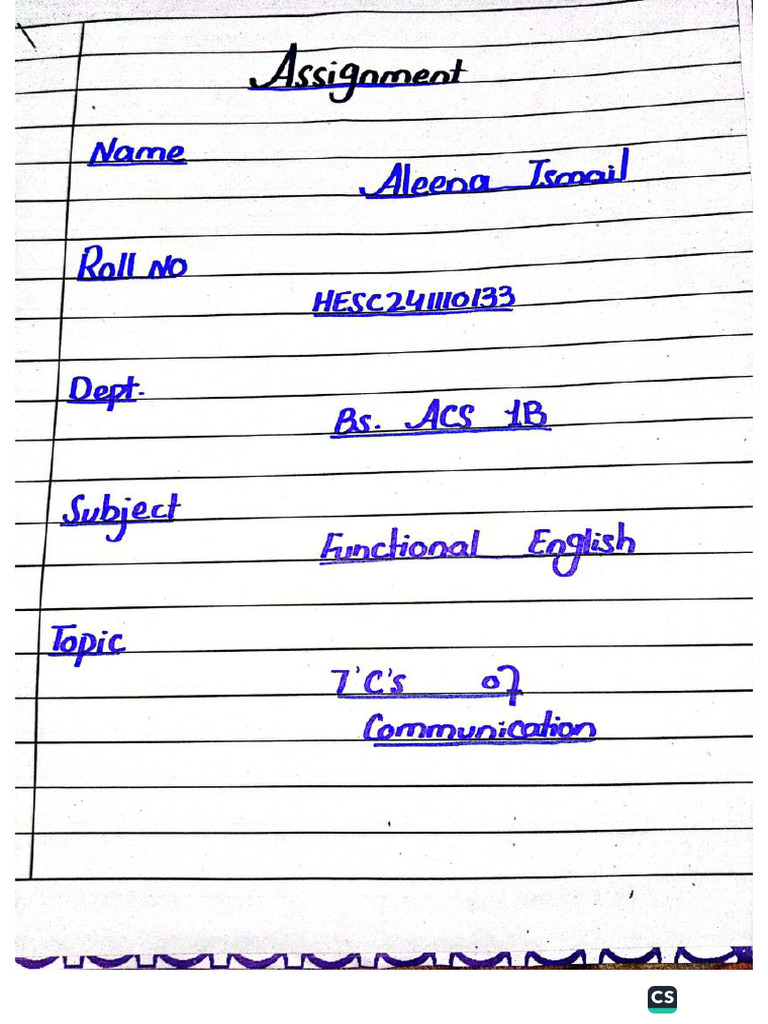 Assignment
Name
Aleena Ismail
Roll No
HESC241110133
Dept.
Bs. ACS 1B
Subject
Functional English
Topic
7'C's of
Communication
CS